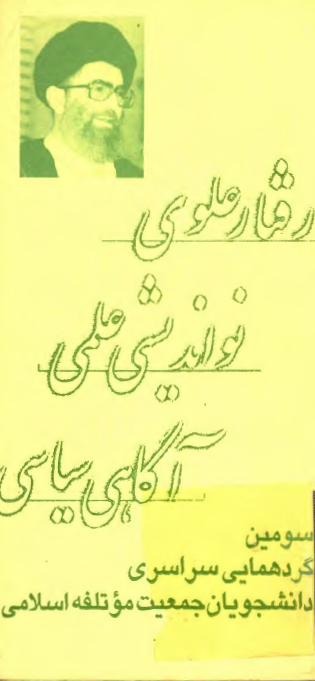 رفتار علوی
نواندیشی علمی
آگاهی سیاسی
سومین
گردهمایی سراسری
دانشجویان جمعیت مؤتلفه اسلامی